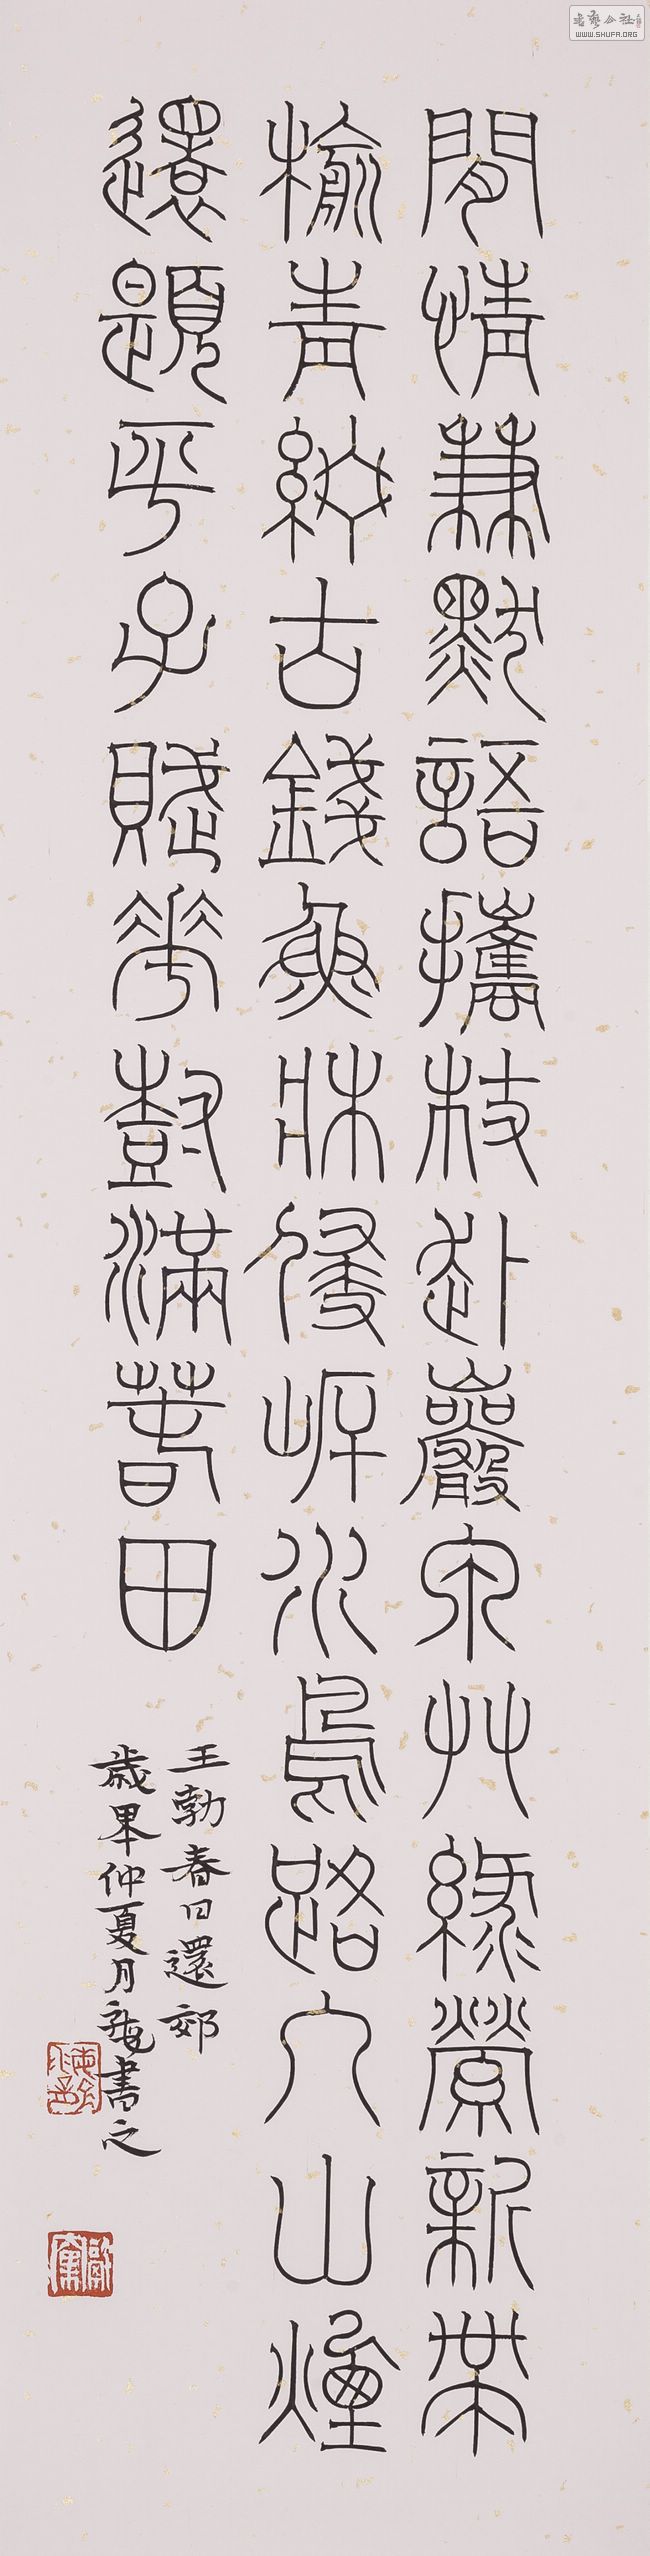 閒情兼默語攜杖赴巖泉艸綠縈新帶
榆青綴古錢魚牀侵岸水鳥路入山煙
還題平子賦華尌滿春田
王勃春日還郊
歲仲夏月書之
书艺公社
WWW.SHUFA.ORG